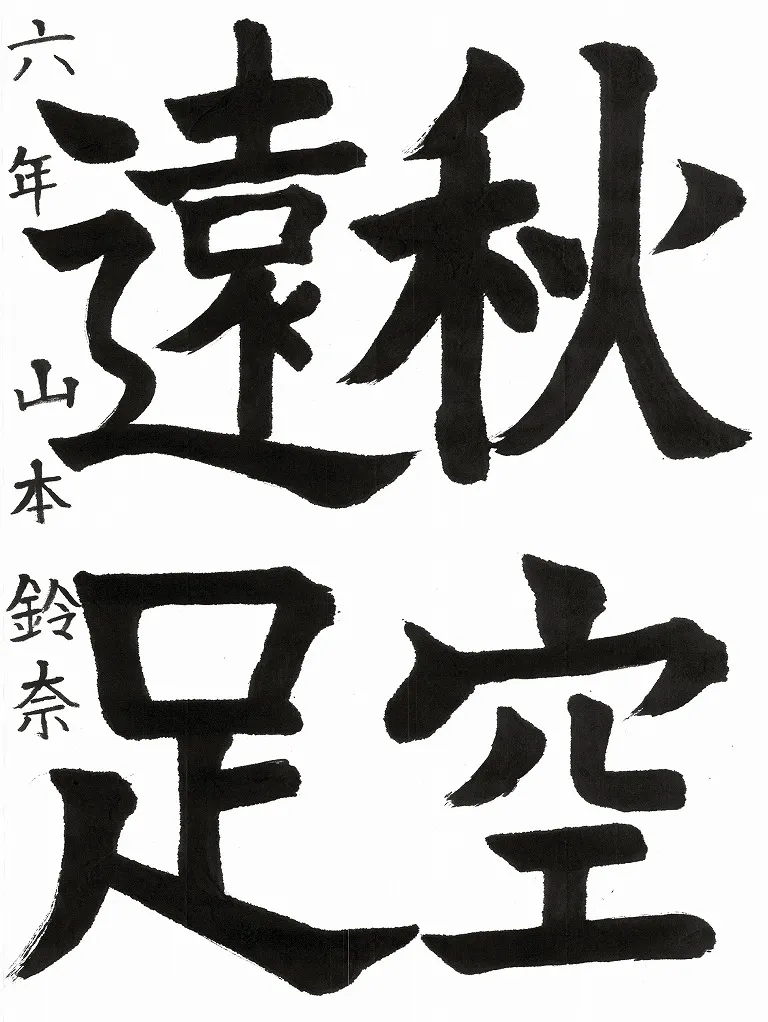 秋空
遠足
六年 山本鈴奈